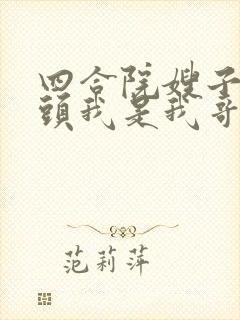 四合院嫂子
頭我是我哥
范莉萍